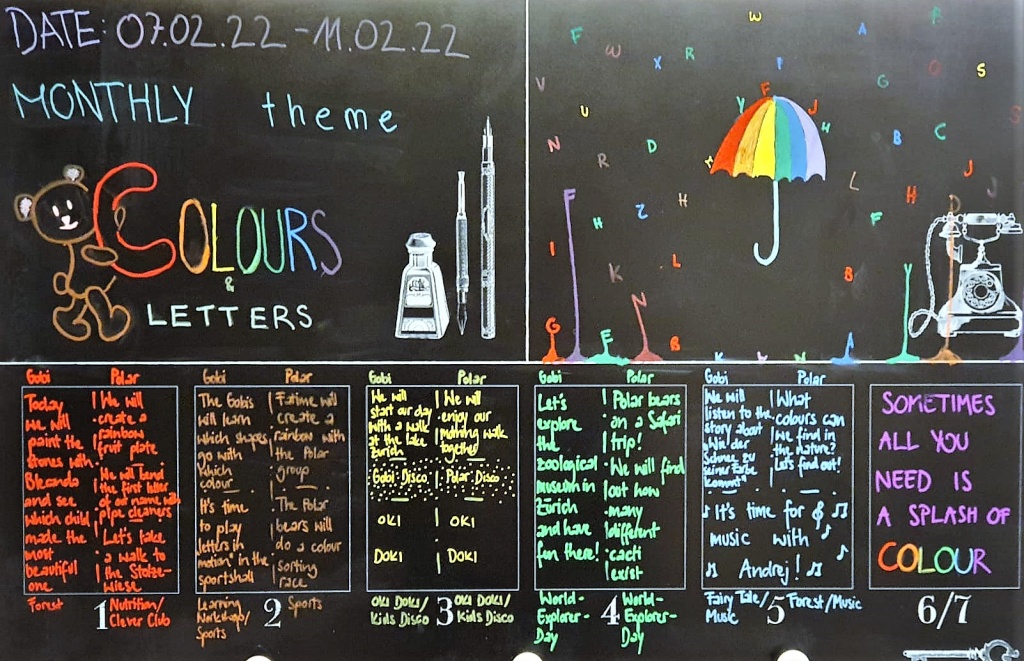 DATE: 07.02.22 - 11.02.22
MONTHLY theme
COLOURS
&
LETTERS
Gobi Polar
Today
we will
paint the
stones with
Bleanda
and see
which child
made the
most
beautiful
one
We will
create a
rainbow
fruit plate
We will bend
the first letter
of our name with
pipe cleaners
Let's take
a walk to
the Stolze-
wiese
Forest 1 Nutrition/
Clever Club
Gobi Polar
The Gobi's
will learn
which shapes
go with
which
colour
It's time
to play
"letters in
motion" in the
sportshall
Fatime will
create a
rainbow with
the Polar
group
The Polar
bears will
do a colour
sorting
race
Learning
Workshop/
Sports
2 Sports
Gobi Polar
We will
start our day
with a walk
at the lake
Zurich
We will
enjoy our
morning walk
together
Gobi Disco Polar Disco
OKI OKI
DOKI DOKI
OKI DOKI/
Kids Disco
3 OKI DOKI/
Kids Disco
Gobi Polar
Let's
explore
the
zoological
museum in
Zurich
and have
fun there!
Polar bears
on a Safari
trip!
We will find
out how
many
different
cacti
exist
World-
Explorer-
Day
4 World-
Explorer-
Day
Gobi Polar
We will
listen to the
story about
"Wie der
Schnee zu
seiner Farbe
kommt"
What
colours can
we find in
the nature?
Let's find out!
It's time for
music with
Andrej!
Fairy Tale/
Music
5 Forest/Music
SOMETIMES
ALL YOU
NEED IS
A SPLASH OF
COLOUR
6/7